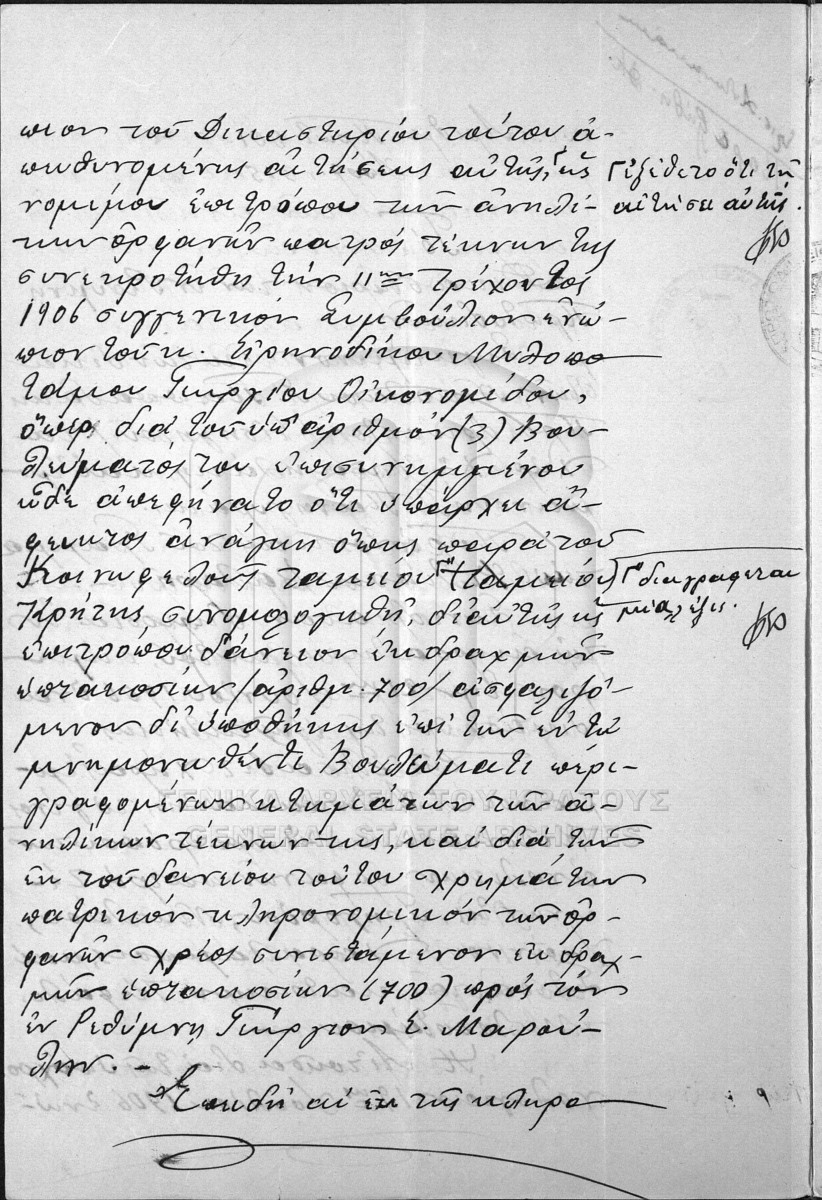 πιον τοῦ Δικαστηρίου τούτου ἀ-
πευθυνομένης αἰτήσεως αὐτῆς, ⌈ὡς ⌈ἐξέθετο ὅτι τῇ
νομίμου ἐπιτρόπου τῶν ἀνηλί- αἰτήσει αὐτῆς.
κων ὀρφανῶν πατρός τέκνων της
συνεκροτήθη τήν 11ην τρέχοντος
1906 συγγενικόν Συμβούλιον ἐνώ-
πιον τοῦ κ. Εἰρηνοδίκου Μυλοπο
τάμου Γεωργίου Οἰκονομίδου,
ὅπερ διά τοῦ ὑπ' ἀριθμόν (3) Βου-
λεύματός του ἐπισυνημμένου
ὧδε ἀπεφήνατο ὅτι ὑπάρχει ἄ-
φευκτος ἀνάγκη ὅπως παρά τοῦ
Κοινωφελοῦς ταμείου ⌈(ταμείου) ⌈διαγράφεται
Κρήτης συνομολογηθῇ, δι' αὐτῆς ὡς μία λέξις.
ἐπιτρόπου δάνειον ἐκ δραχμῶν
ἑπτακοσίων (ἀριθμ. 700) ἀσφαλιζό-
μενον δι' ὑποθήκης ἐπί τῶν ἐν τῷ
μνημονευθέντι Βουλεύματι περι-
γραφομένων κτημάτων τῶν ἀ-
νηλίκων τέκνων της, καί διά τῶν
ἐκ τοῦ δανείου τούτου χρημάτων
πατρικόν κληρονομικόν τῶν ὀρ-
φανῶν χρέος συνιστάμενον ἐκ δραχ-
μῶν ἑπτακοσίων (700) πρός τόν
ἐν Ρεθύμνῃ Γεώργιον Ε. Μαρού-
λην. -
Ἐπειδή αἱ ἐκ τῆς κληρο
ΓΕΝΙΚΑ ΑΡΧΕΙΑ ΤΟΥ ΚΡΑΤΟΥΣ
GENERAL STATE ARCHIVES